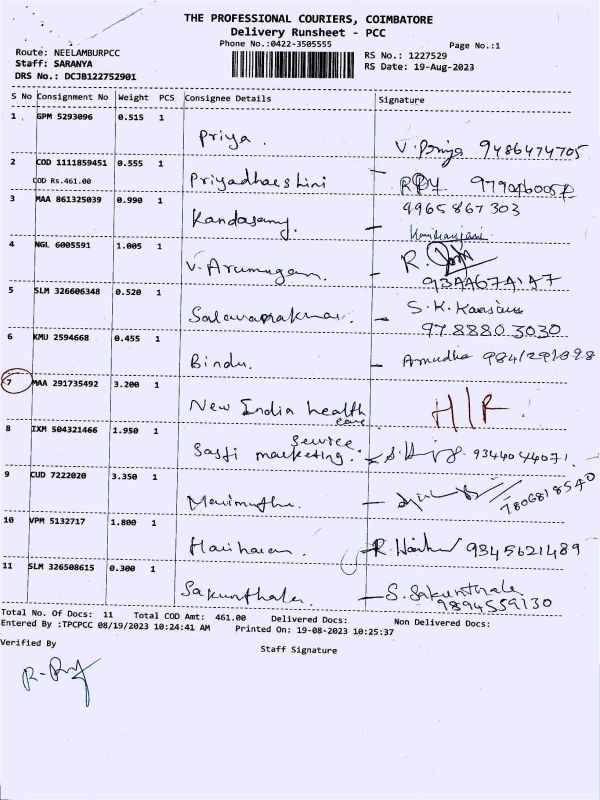 THE PROFESSIONAL COURIERS, COIMBATORE
Delivery Runsheet - PCC
Phone No.:0422-3505555
Page No.:1
Route: NEELAMBURPCC
Staff: SARANYA
DRS No.: DCJB122752901
RS No.: 1227529
RS Date: 19-Aug-2023
S No Consignment No Weight PCS Consignee Details Signature
1 GPM 5293096 0.515 1
Priya . V. Priya 9486474705
2 COD 1111859451 0.555 1
COD Rs.461.00
Priyadhaeshini
3 MAA 861325039 0.990 1 9965867303
Kandasamy.
4 NGL 6005591 1.005 1
V. Arumugam. R.
5 SLM 326606348 0.520 1
S.K.
97 8880 3030
6 KMU 2594668 0.455 1
Bindu. - Amudha
7 MAA 291735492 3.200 1
New India health care
8 IXM 504321466 1.950 1
Sasti marketing service. 9344044071.
9 CUD 7222020 3.350 1
7806818540
10 VPM 5132717 1.800 1
Hariharan . R. 9345621489
11 SLM 326508615 0.300 1
Sakunthala. - S. Sakunthala
9894559130
Total No. Of Docs: 11 Total COD Amt: 461.00 Delivered Docs: Non Delivered Docs:
Entered By :TPCPCC 08/19/2023 10:24:41 AM Printed On: 19-08-2023 10:25:37
Verified By
Staff Signature